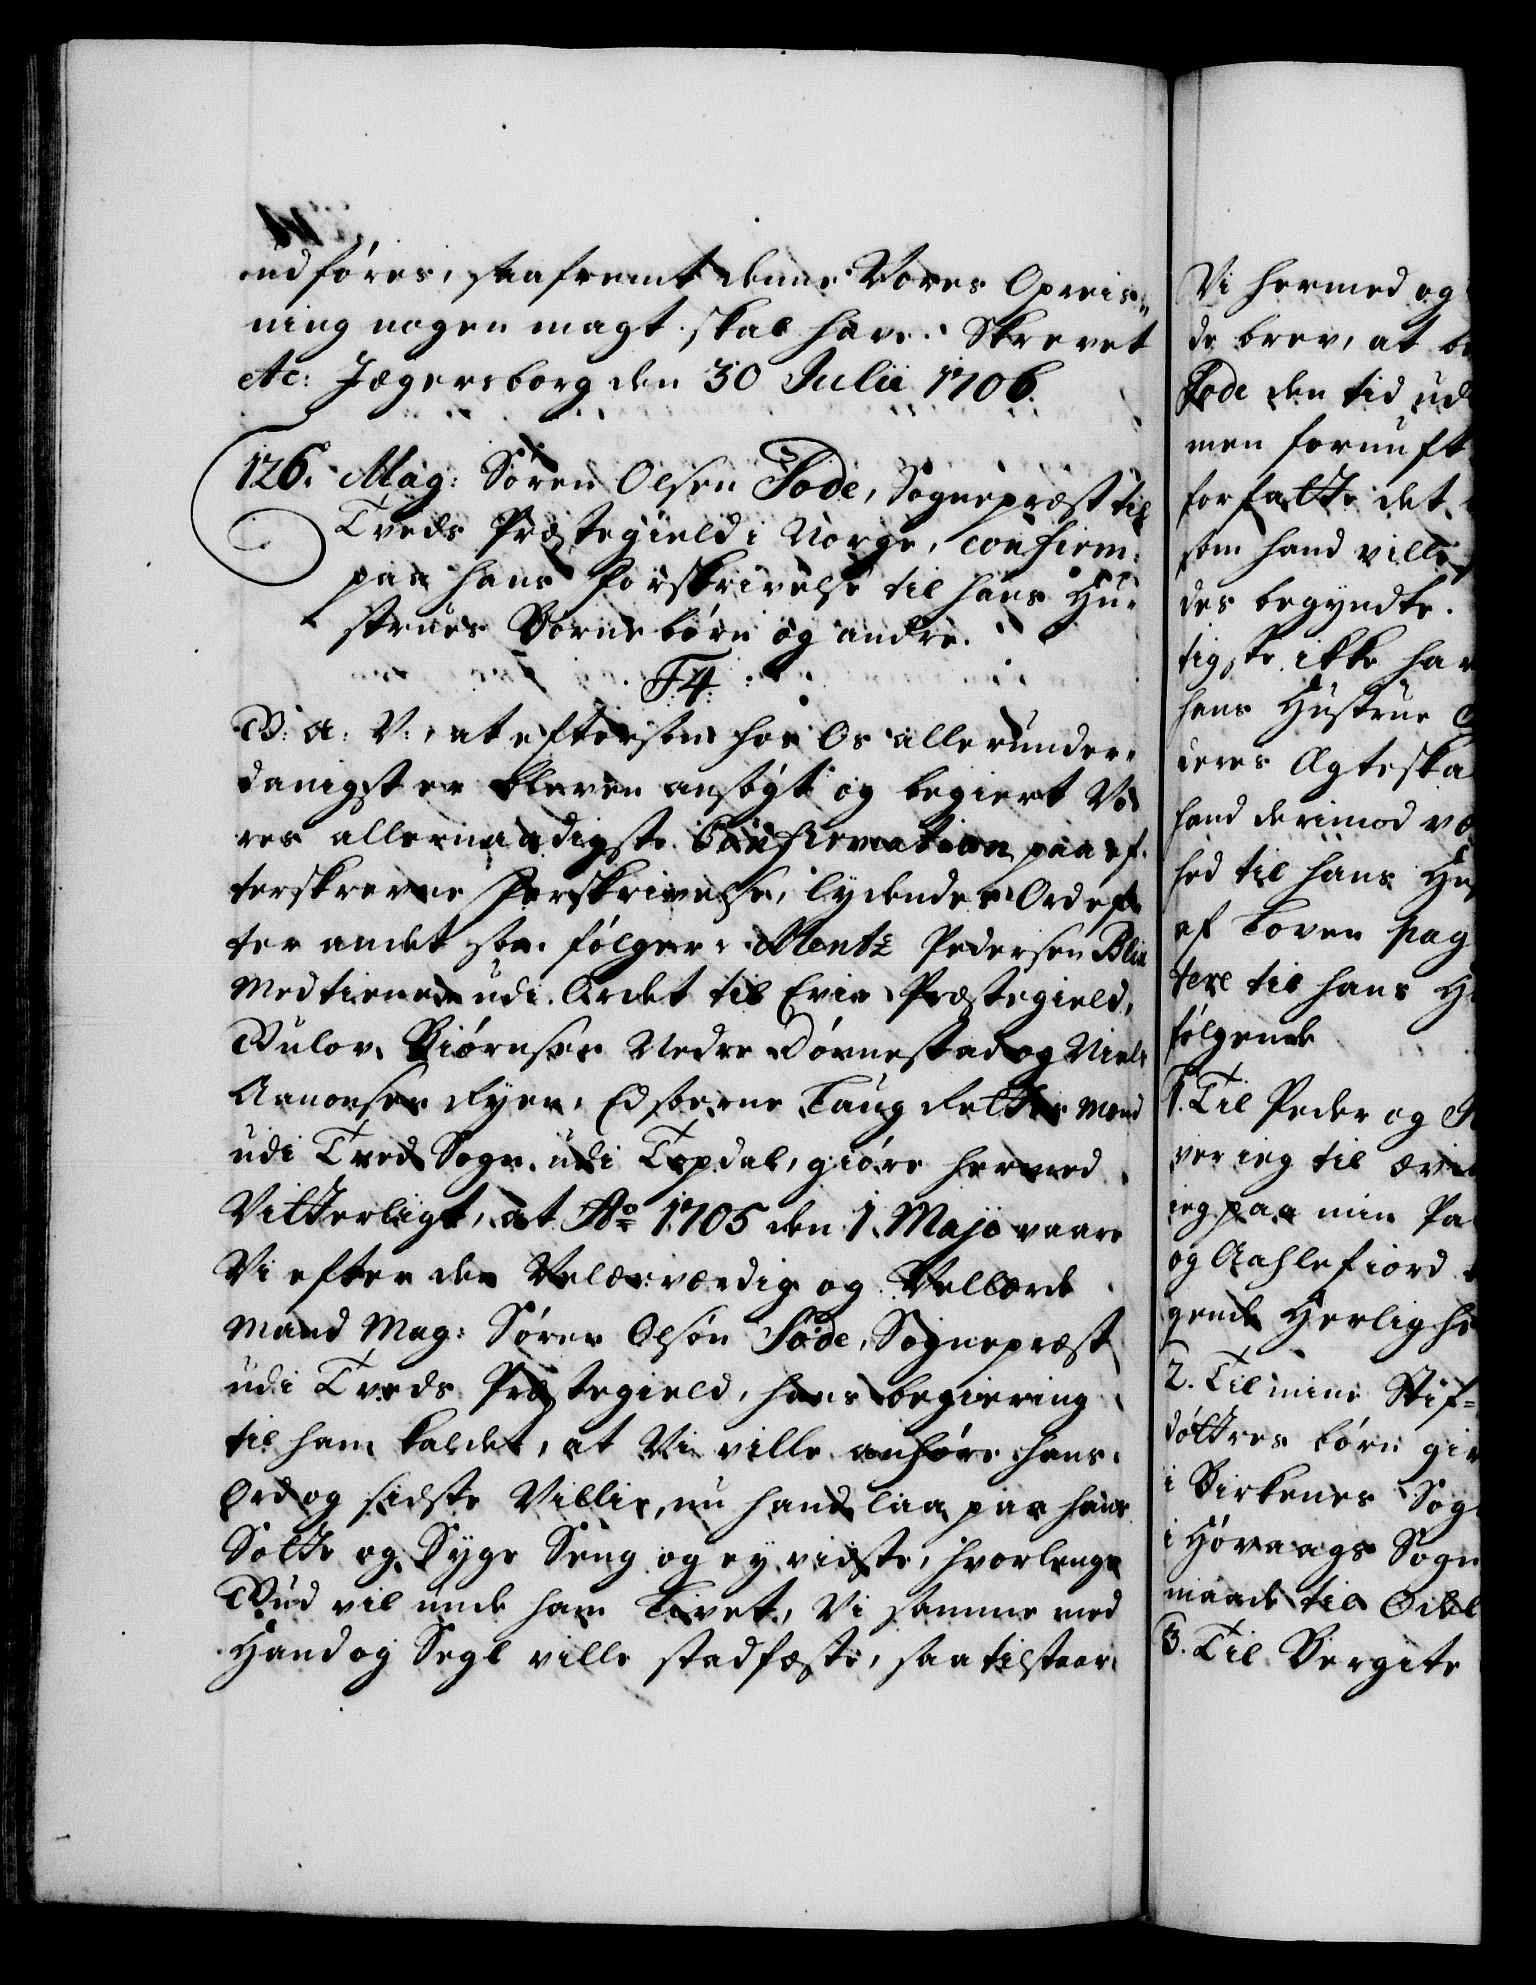 udføres, saafremt denne Vores Opreis-
ning nogen magt skal have. Skrevet
etc: Jægersborg den 30 Julii 1706.
126. Mag: Søren Olsen Tode, Sognepræst til
Tveds Præstegield i Norge, confirm:
paa hans Forskrivelse til hans Hu-
strues Børnebørn og andre.
F4:
G: A: V:, at eftersom hos Os allerunder-
danigst er bleven ansøgt og begiert Vo
res allernaadigste Confirmation paa ef-
terskrevne Forskrivelse, lydendes Ord ef-
ter andet som følger: Mentz Pedersen
Medtienere udi Ordet til Evie Præstegield,
Gulov Biørnsen Nedre Dønnestad og Niels
Aanonsen Ryen, Edsvorne Laug Rettes Mend
udi Tved Sogn udi Topdal, giøre hermed
Vitterligt, at Ao 1705 den 1. Majo vaare
Vi efter den Velærværdig og Vellærde
Mand Mag: Søren Olsøn Tode, Sognepræst
udi Tveds Præstegield, hans begiering
til ham kaldet, at Vi ville anhøre hans
Ord og sidste Villie, nu hand laa paa hans
Sotte og Syge Seng og ey vidste, hvorlenge
Gud vil unde ham Livet, Vi samme med
Haand og Segl ville stadfæste, saa tilstaar
Vi hermed og
de brev, at
Tode den tid ud
men fornuft
forfatte det
som hand ville
des begyndte.
tigste ikke hav
hans Hustrue
deres Ægteska
hand derimod
hed til hans Hus
af Loven pag
tere til hans H
følgende
1. Til Peder og
ver ieg til
ieg paa min Pa
og Aahlefiord
gende Herlighe
2. Til mine Stif-
døttres børn giv
i Birkenes Sog
i Høvaags Sogn
maade til Odel
3. Til Bergite